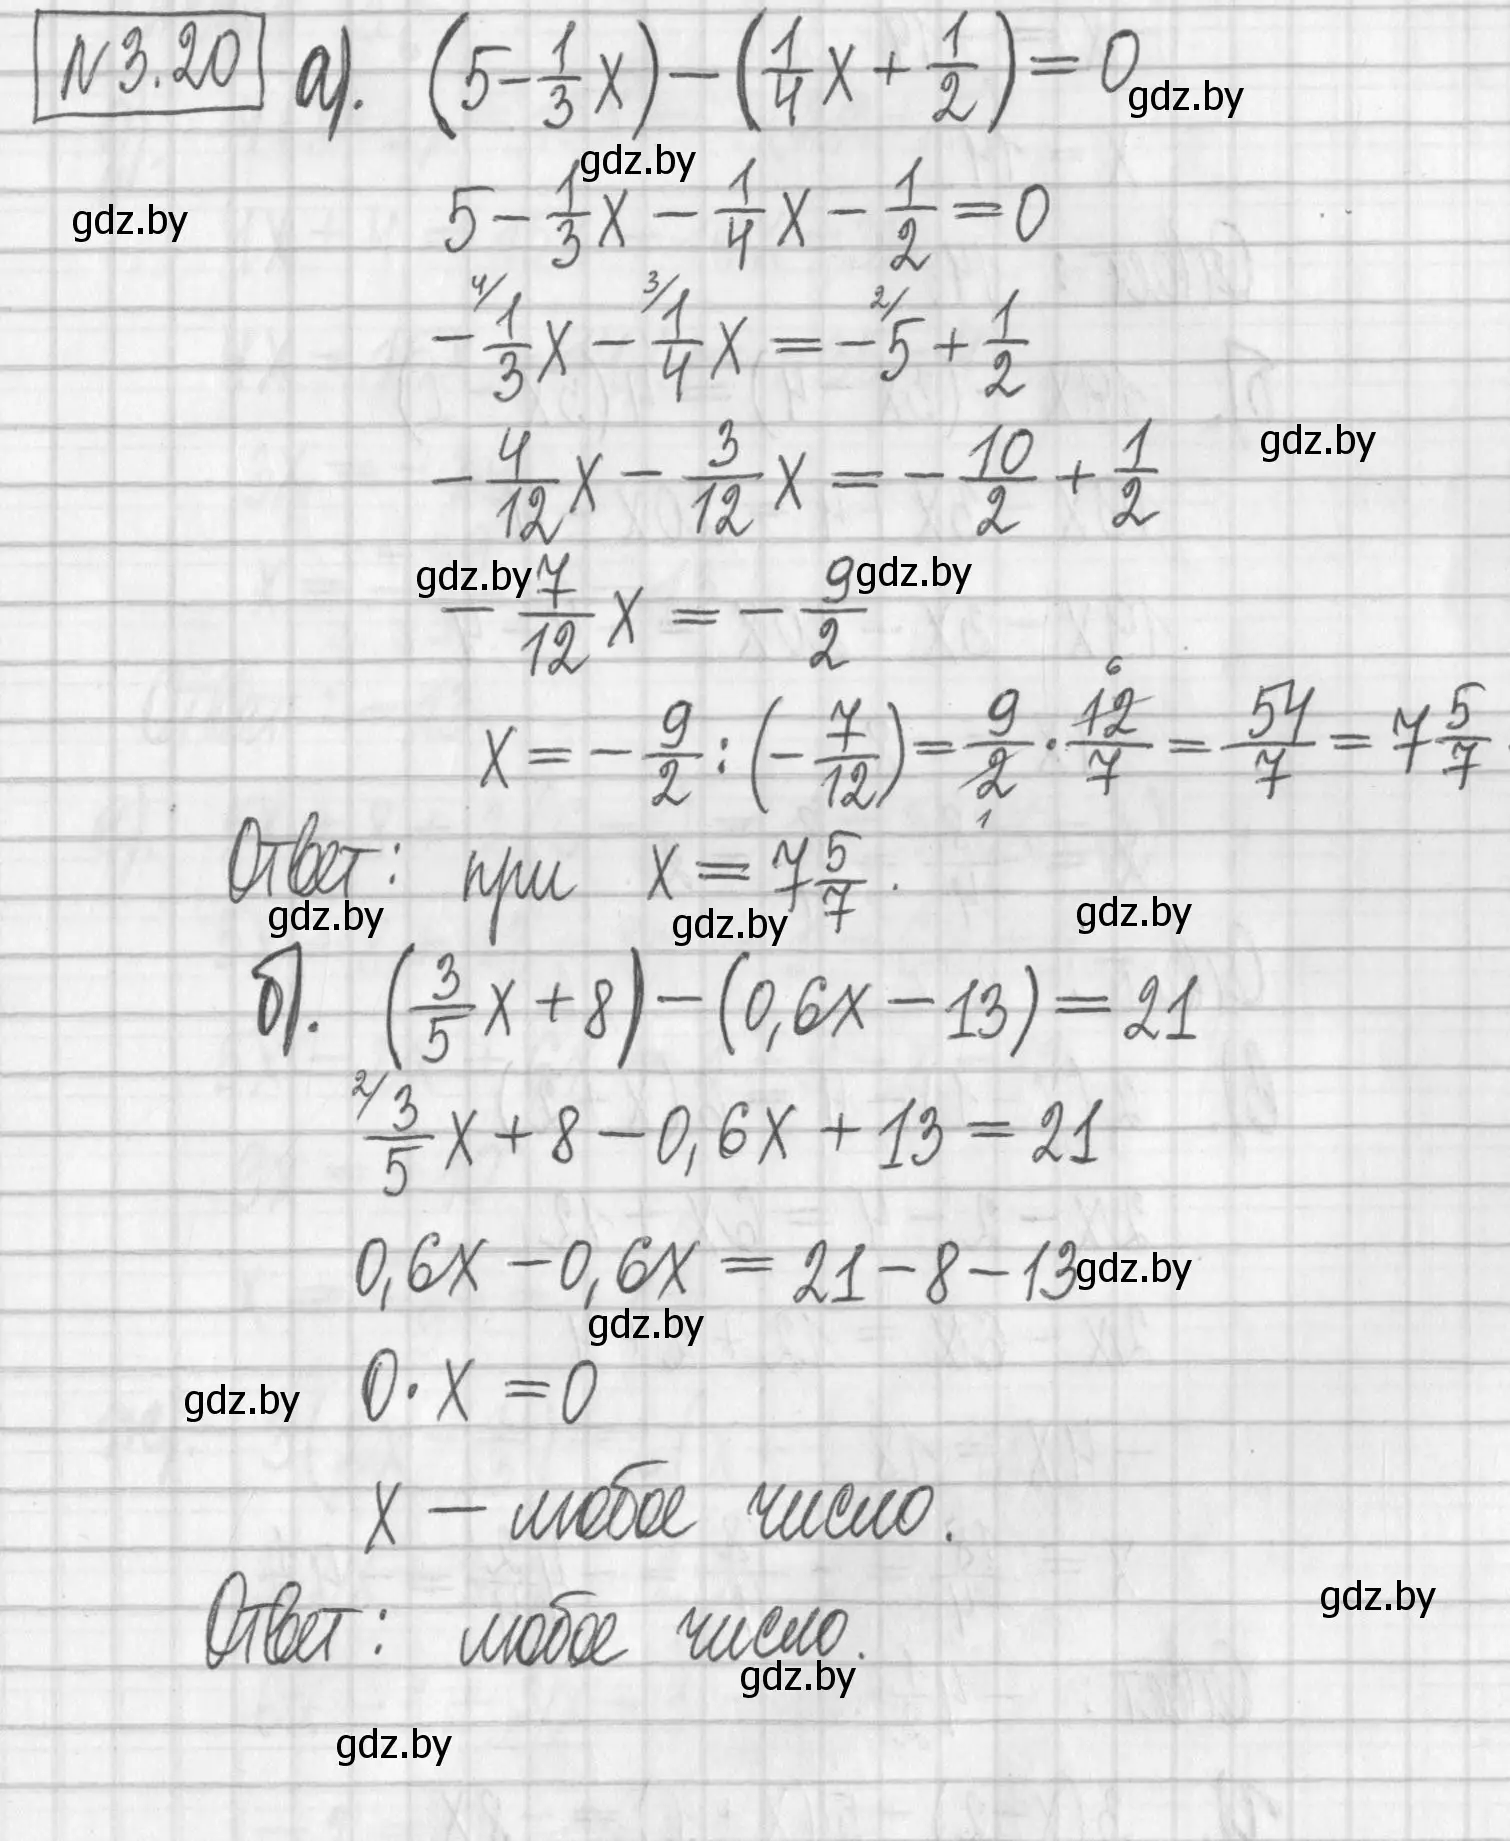 N 3.20 а). (5 - 1/3 x) - (1/4 x + 1/2) = 0
gdz.by
gdz.by
gdz.by
5 - 1/3 x - 1/4 x - 1/2 = 0
- 4/ 1/3 x - 3/ 1/4 x = - 2/ 5 + 1/2
- 4/12 x - 3/12 x = - 10/2 + 1/2
gdz.by
gdz.by
gdz.by
- 7/12 x = - 9/2
x = - 9/2 : (- 7/12) = 9/2 1 · 12 6/7 = 54/7 = 7 5/7.
Ответ: при x = 7 5/7.
gdz.by
gdz.by
gdz.by
б). (3/5 x + 8) - (0,6x - 13) = 21
2/ 3/5 x + 8 - 0,6x + 13 = 21
0,6x - 0,6x = 21 - 8 - 13
gdz.by
gdz.by
0 · x = 0
gdz.by
x - любое число.
Ответ: любое число.
gdz.by
gdz.by
gdz.by